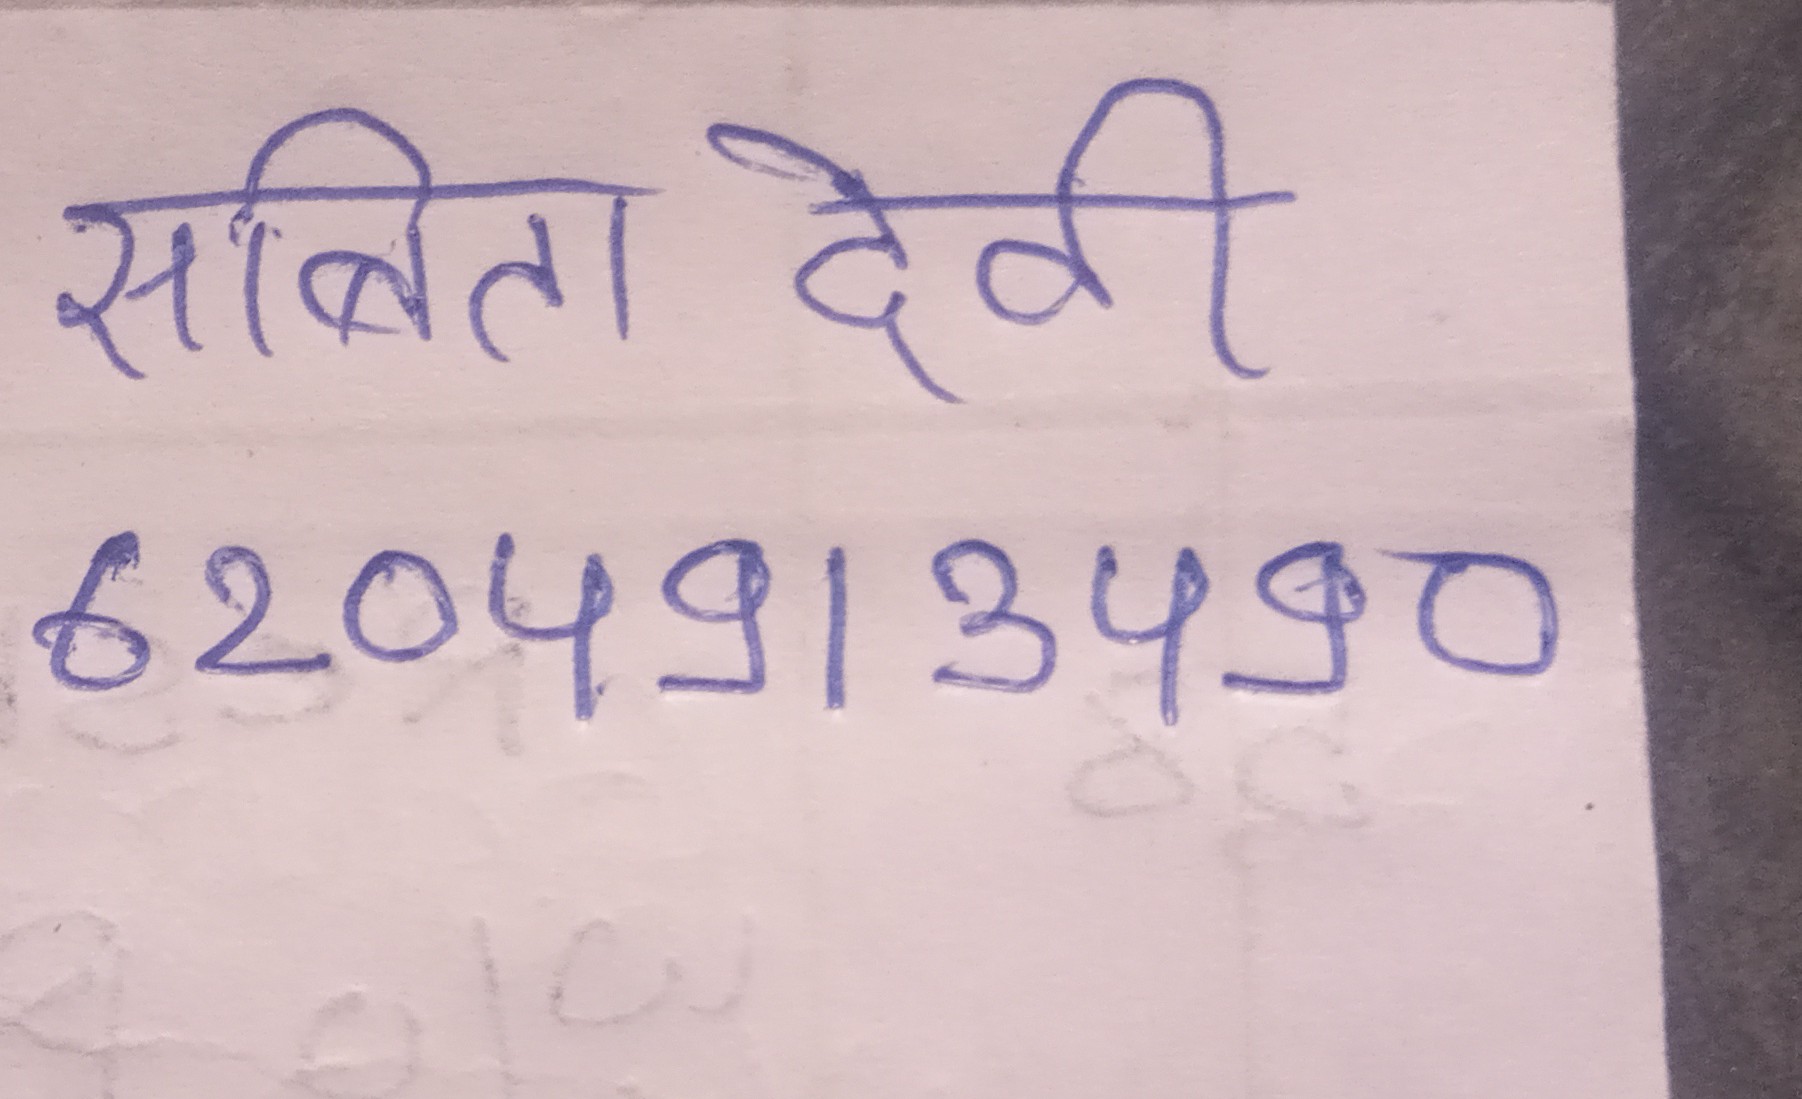 सबिता देवी
6204913490